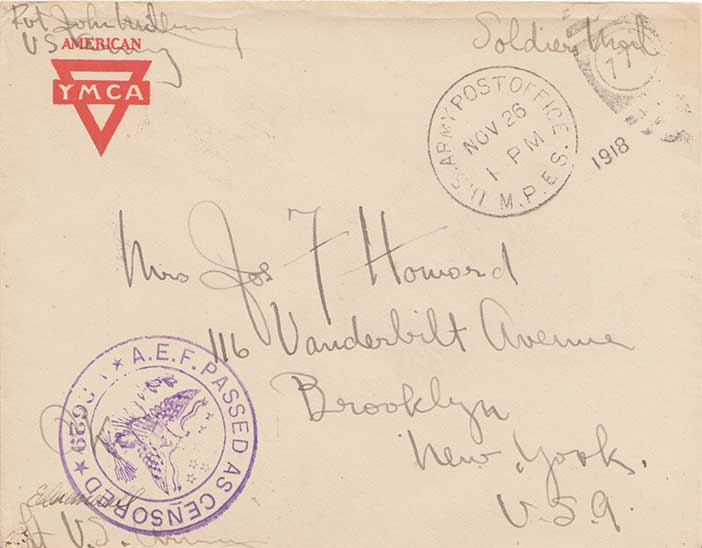 Pvt John
U S Army
AMERICAN
YMCA
Soldiers Mail
U.S. ARMY POST OFFICE M.P.E.S.
NOV 26
1 PM
1918
Mrs Jos F Howard
116 Vanderbilt Avenue
Brooklyn
New York.
U.S.A.
A.E.F. PASSED AS CENSORED
OK
U.S. Army